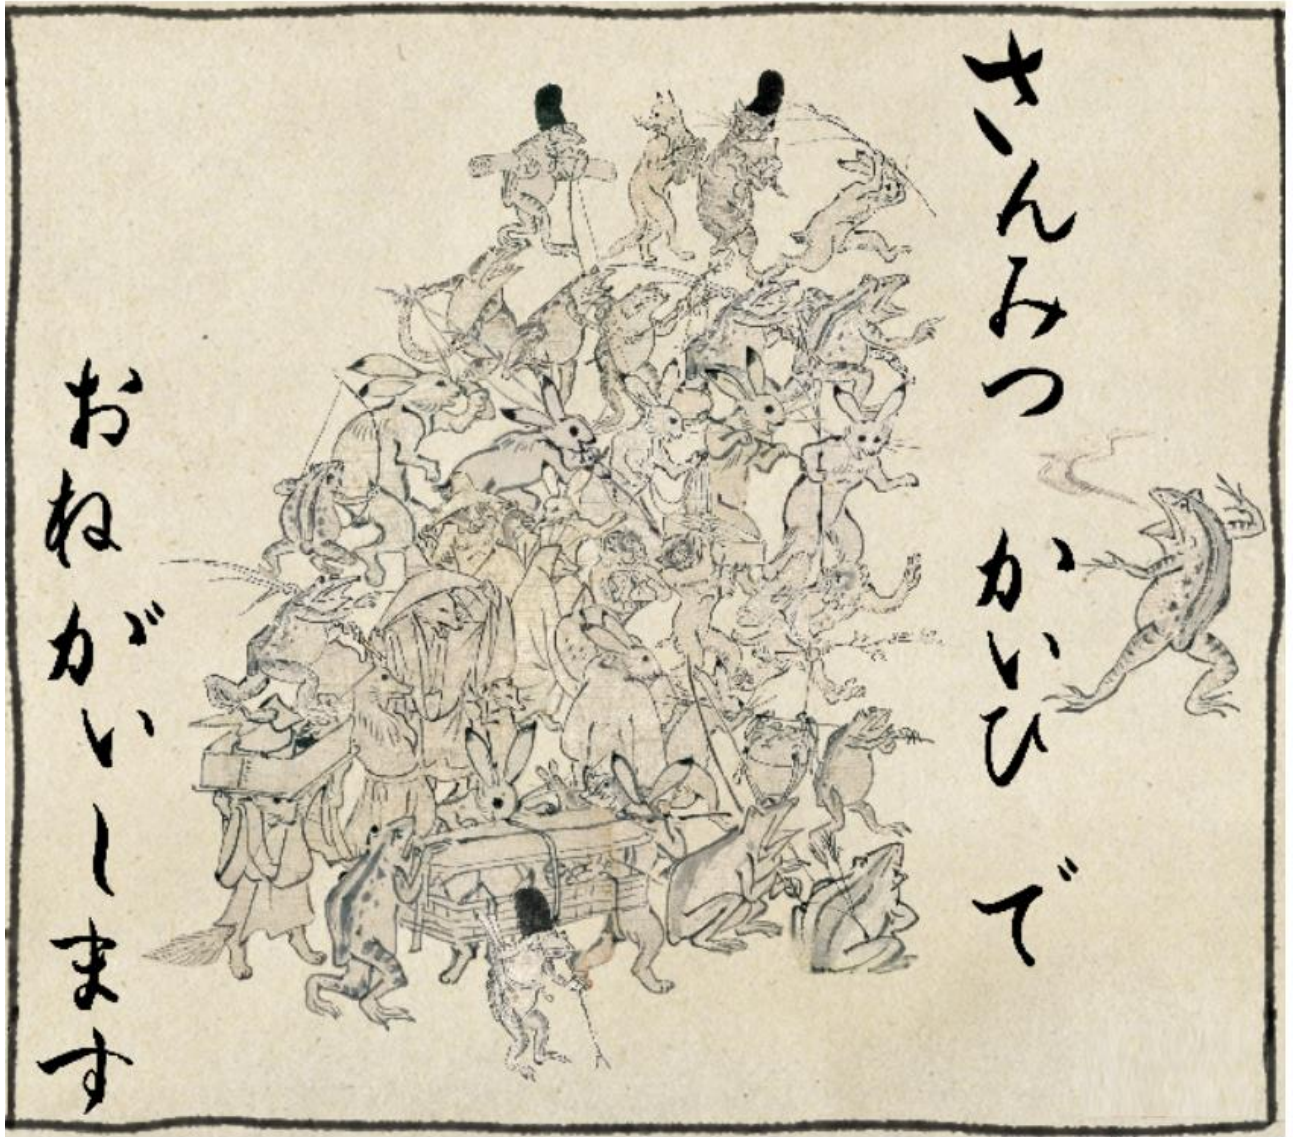 さんみつ かいひ で
おねがいします